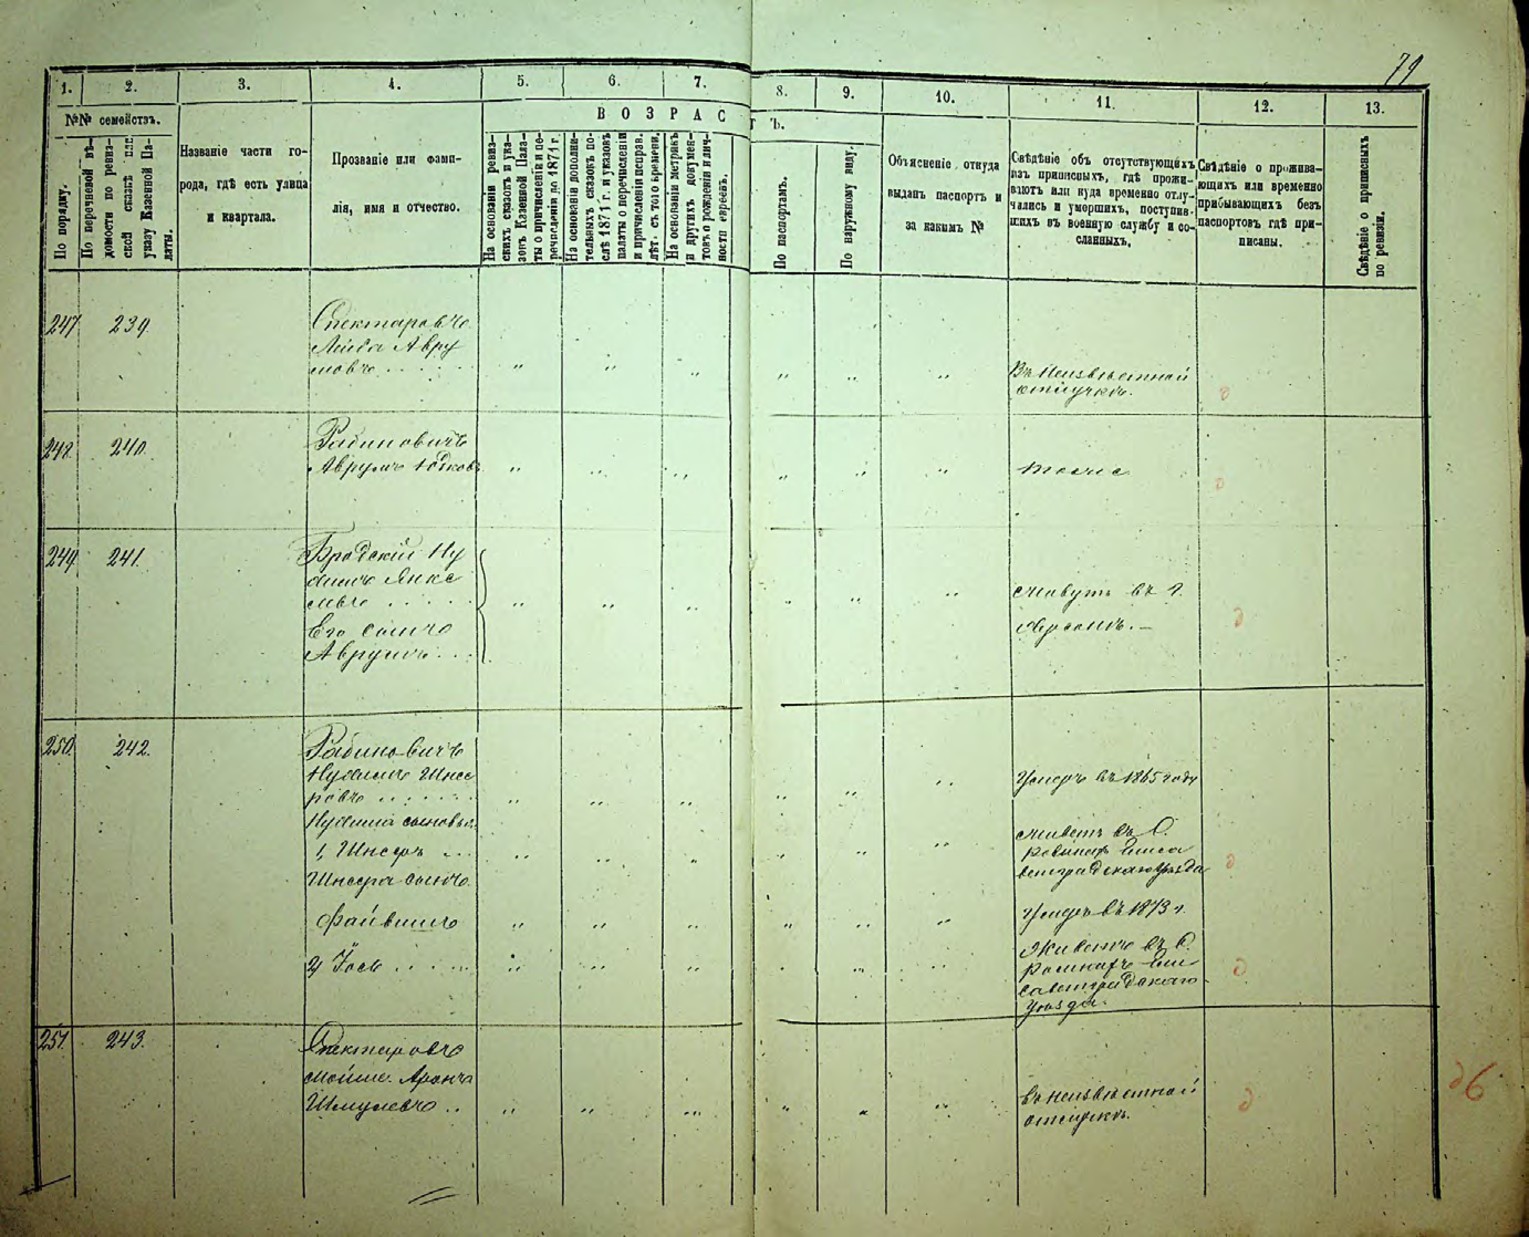 79
1.
2.
3.
4.
5.
6.
7.
8.
9.
10.
11.
12.
13.
№№ семействъ.
ВОЗРАС
ТЪ.
По порядку.
По перечневой вѣ-
домости по ревиз-
ской сказкѣ или
указу Казенной Па-
латы.
Названіе части го-
рода, гдѣ есть улица
и квартала.
Прозваніе или фами-
лія, имя и отчество.
На основаніи ревиз-
скихъ сказокъ и ука-
зовъ Казенной Пала-
ты о причисленіи и пе-
речисленіи до 1871 г.
На основаніи дополни-
тельныхъ сказокъ по-
слѣ 1871 г. и указовъ
палаты о перечисленіи
и причисленіи исправ.
лѣт. съ того времени.
На основаніи метрикъ
и другихъ докумен-
товъ о рожденіи и лич-
ности евреевъ.
По паспортамъ.
По наружному виду.
Объясненіе откуда
выданъ паспортъ и
за какимъ №
Свѣдѣніе объ отсутствующихъ
изъ приписныхъ, гдѣ прожи-
ваютъ или куда временно отлу-
чались и умершихъ, поступив-
шихъ въ военную службу и со-
сланныхъ.
Свѣдѣніе о прожива-
ющихъ или временно
прибывающихъ безъ
паспортовъ гдѣ при-
писаны.
Свѣдѣніе о приписныхъ
по ревизіи.
247
239
Спектаровъ
Лейба Авру
мовъ . . . . .
Въ неизвѣстной
отлучкѣ.
248
240
Рабиновичъ
Аврумъ Юдков
тоже
249
241.
Бродскій Ну
химъ Янке
левъ . . . . .
Его сынъ
Аврумъ . . .
живутъ въ г.
Херсонѣ. —
250
242.
Рабиновичъ
Нухимъ Шнее
ровъ . . . . . .
Нухима сыновья
1, Шнееръ . . .
Шнеера сынъ
Файвишъ
2, Іось . . . . .
Умеръ въ 1865 году
живетъ въ С.
Елиса
ветградскаго уѣзда
Умеръ въ 1873 г.
Живетъ въ С.
Ели
саветградскаго
уѣзда.
251.
243.
Спектаровъ
Мойше Аронъ
Шмулевъ . .
въ неизвѣстной
отлучкѣ.
д6